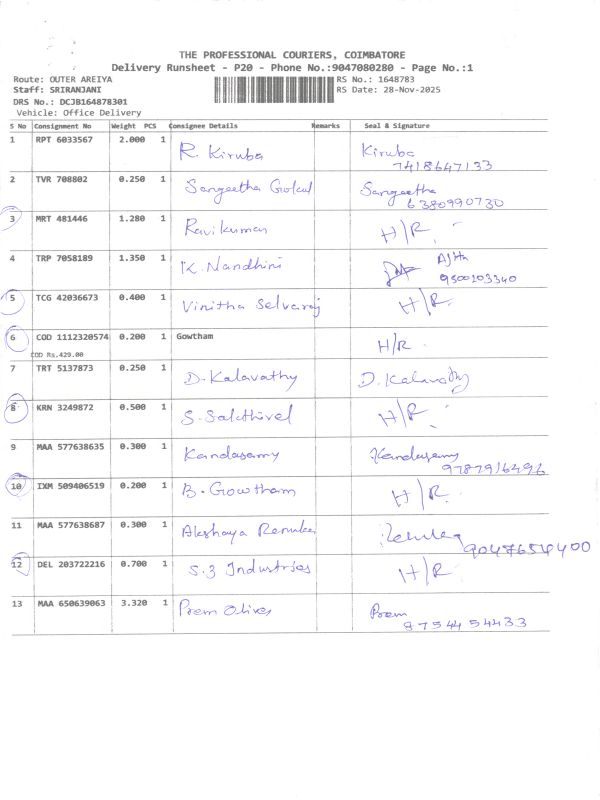 THE PROFESSIONAL COURIERS, COIMBATORE
Delivery Runsheet - P20 - Phone No.:9047080280 - Page No.:1
Route: OUTER AREIYA RS No.: 1648783
Staff: SRIRANJANI RS Date: 28-Nov-2025
DRS No.: DCJB164878301
Vehicle: Office Delivery
S No Consignment No Weight PCS Consignee Details Remarks Seal & Signature
1 RPT 6033567 2.000 1 R. Kiruba Kiruba
7418647133
2 TVR 708802 0.250 1 Sangeetha Gokul Sangeetha
6380990730
3 MRT 481446 1.280 1 Ravikumar H/R.
4 TRP 7058189 1.350 1 K. Nandhini
9500103340
5 TCG 42036673 0.400 1 Vinitha Selvaraj H/R.
6 COD 1112320574 0.200 1 Gowtham H/R.
COD Rs.429.00
7 TRT 5137873 0.250 1 D. Kalavathy D. Kalavathy
8 KRN 3249872 0.500 1 S. Sakthivel H/R.
9 MAA 577638635 0.300 1 Kandasamy Kandasamy
9787916496
10 IXM 509406519 0.200 1 B. Gowtham H/R.
11 MAA 577638687 0.300 1 Akshaya Renuka
9047654400
12 DEL 203722216 0.700 1 S.3 Industries H/R.
13 MAA 650639063 3.320 1 Prem Oliver Prem
8754454433